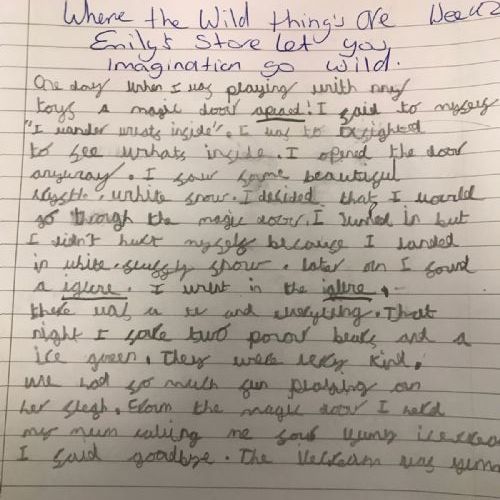 Where the Wild things are Week 2
Emily's Store Let you
imagination go wild.
One day when I was playing with my
toys a magic door apead! I said to myself
"I wander whats inside". I was to exsighted
to see whats inside. I opened the door
anyway. I saw some beautiful
white snow. I decided that I would
go through the magic door. I Jumed in but
I didn't hurt myself because I landed
in white fluffy snow. later on I found
a iglure. I went in the iglure.
there was a tv and everything. That
night I saw two polar bears and a
ice queen. They were very kind.
we had so much fun playing on
her slegh. From the magic door I herd
my mum calling me for yumy
I said goodbye. The was